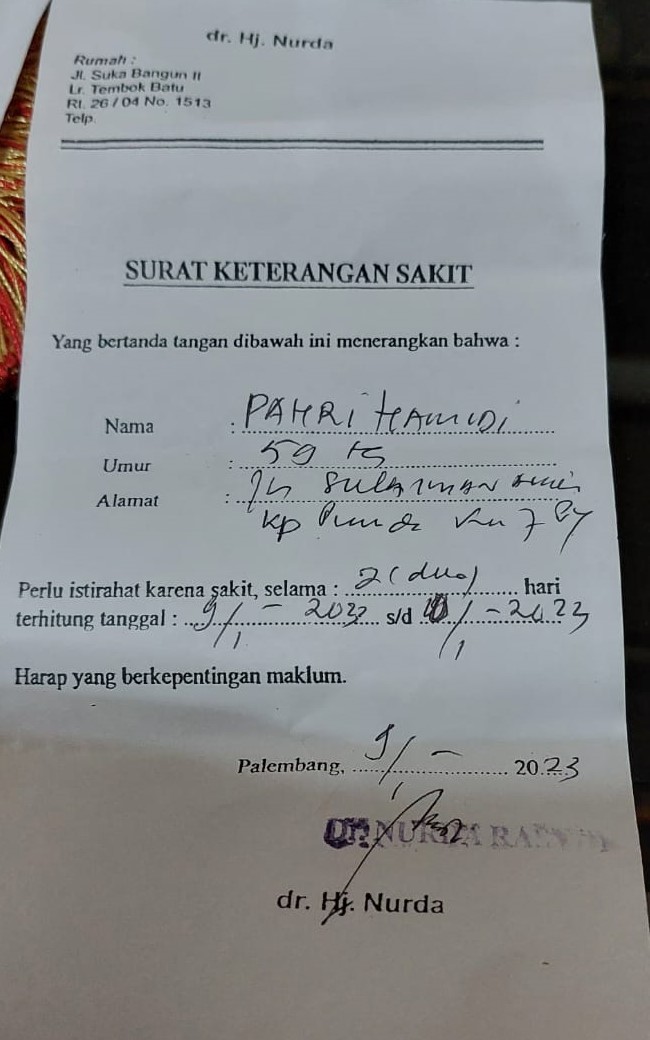 dr. Hj. Nurda
Rumah :
Jl. Suka Bangun II
Lr. Tembok Batu
Rt. 26 / 04 No. 1513
Telp.
SURAT KETERANGAN SAKIT
Yang bertanda tangan dibawah ini menerangkan bahwa :
Nama : PAHRI HAMIDI
Umur : 59 th
Alamat : Jln SULAIMAN
Kp
Perlu istirahat karena sakit, selama : 2 (dua) hari
terhitung tanggal : 9/1 - 2023 s/d 10/1 - 2023
Harap yang berkepentingan maklum.
Palembang, 9/1 - 2023
Dr. NURDA
dr. Hj. Nurda